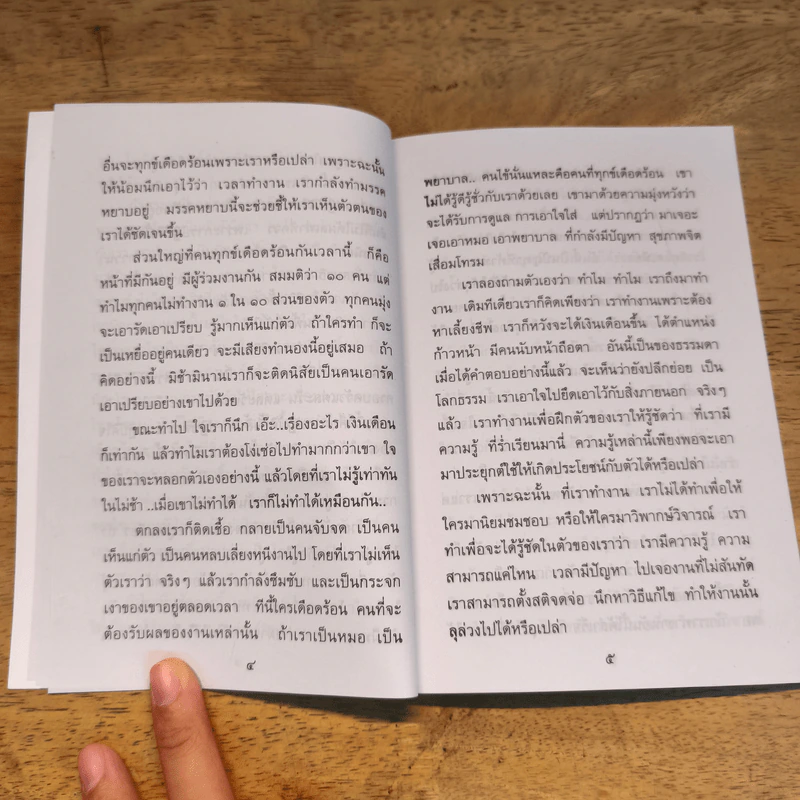 อื่นจะทุกข์เดือดร้อนเพราะเราหรือเปล่า เพราะฉะนั้น
ให้น้อมนึกเอาไว้ว่า เวลาทำงาน เรากำลังทำมรรค
หยาบอยู่ มรรคหยาบนี้จะช่วยชี้ให้เราเห็นตัวตนของ
เราได้ชัดเจนขึ้น
ส่วนใหญ่ที่คนทุกข์เดือดร้อนกันเวลานี้ ก็คือ
หน้าที่มีกันอยู่ มีผู้ร่วมงานกัน สมมติว่า ๑๐ คน แต่
ทำไมทุกคนไม่ทำงาน ๑ ใน ๑๐ ส่วนของตัว ทุกคนมุ่ง
จะเอารัดเอาเปรียบ รู้มากเห็นแก่ตัว ถ้าใครทำ ก็จะ
เป็นเหยื่ออยู่คนเดียว จะมีเสียงทำนองนี้อยู่เสมอ ถ้า
คิดอย่างนี้ มิช้ามินานเราก็จะติดนิสัยเป็นคนเอารัด
เอาเปรียบอย่างเขาไปด้วย
ขณะทำไป ใจเราก็นึก เอ๊ะ..เรื่องอะไร เงินเดือน
ก็เท่ากัน แล้วทำไมเราต้องโง่เซ่อไปทำมากกว่าเขา ใจ
ของเราจะหลอกตัวเองอย่างนี้ แล้วโดยที่เราไม่รู้เท่าทัน
ในไม่ช้า ..เมื่อเขาไม่ทำได้ เราก็ไม่ทำได้เหมือนกัน..
ตกลงเราก็ติดเชื้อ กลายเป็นคนจับจด เป็นคน
เห็นแก่ตัว เป็นคนหลบเลี่ยงหนีงานไป โดยที่เราไม่เห็น
ตัวเราว่า จริงๆ แล้วเรากำลังซึมซับ และเป็นกระจก
เงาของเขาอยู่ตลอดเวลา ทีนี้ใครเดือดร้อน คนที่จะ
ต้องรับผลของงานเหล่านั้น ถ้าเราเป็นหมอ เป็น
๔
พยาบาล.. คนไข้นั่นแหละคือคนที่ทุกข์เดือดร้อน เขา
ไม่ได้รู้ดีรู้ชั่วกับเราด้วยเลย เขามาด้วยความมุ่งหวังว่า
จะได้รับการดูแล การเอาใจใส่ แต่ปรากฏว่า มาเจอะ
เจอเอาหมอ เอาพยาบาล ที่กำลังมีปัญหา สุขภาพจิต
เสื่อมโทรม
เราลองถามตัวเองว่า ทำไม ทำไม เราถึงมาทำ
งาน เดิมทีเดียวเราก็คิดเพียงว่า เราทำงานเพราะต้อง
หาเลี้ยงชีพ เราก็หวังจะได้เงินเดือนขึ้น ได้ตำแหน่ง
ก้าวหน้า มีคนนับหน้าถือตา อันนี้เป็นของธรรมดา
เมื่อได้คำตอบอย่างนี้แล้ว จะเห็นว่ายังปลีกย่อย เป็น
โลกธรรม เราเอาใจไปยึดเอาไว้กับสิ่งภายนอก จริงๆ
แล้ว เราทำงานเพื่อฝึกตัวของเราให้รู้ชัดว่า ที่เรามี
ความรู้ ที่ร่ำเรียนมานี่ ความรู้เหล่านี้เพียงพอจะเอา
มาประยุกต์ใช้ให้เกิดประโยชน์กับตัวได้หรือเปล่า
เพราะฉะนั้น ที่เราทำงาน เราไม่ได้ทำเพื่อให้
ใครมานิยมชมชอบ หรือให้ใครมาวิพากษ์วิจารณ์ เรา
ทำเพื่อจะได้รู้ชัดในตัวของเราว่า เรามีความรู้ ความ
สามารถแค่ไหน เวลามีปัญหา ไปเจองานที่ไม่สันทัด
เราสามารถตั้งสติจดจ่อ นึกหาวิธีแก้ไข ทำให้งานนั้น
ลุล่วงไปได้หรือเปล่า
๕